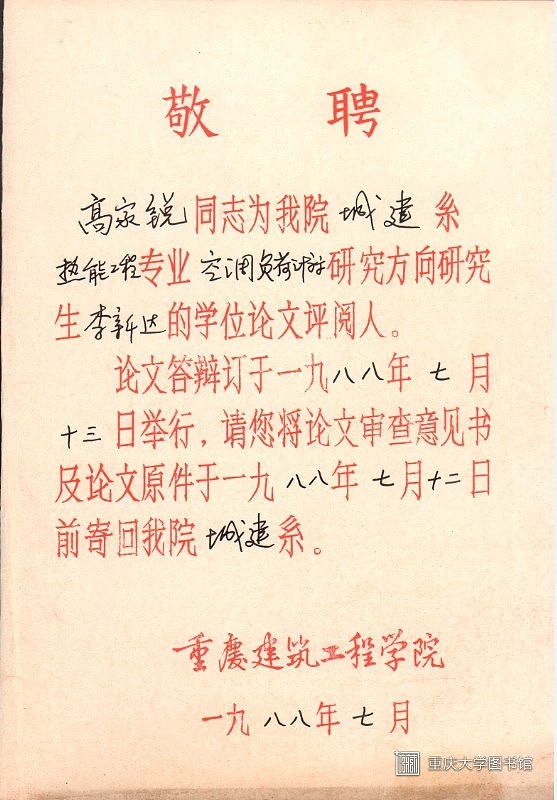 敬 聘
高家锐同志为我院 城建 系
热能工程专业 空调负荷计算研究方向研究
生李新达的学位论文评阅人。
论文答辩订于一九八八年 七 月
十三 日举行,请您将论文审查意见书
及论文原件于一九 八八年 七月十二日
前寄回我院 城建系。
重庆建筑工程学院
一九 八八年 七 月
重庆大学图书馆